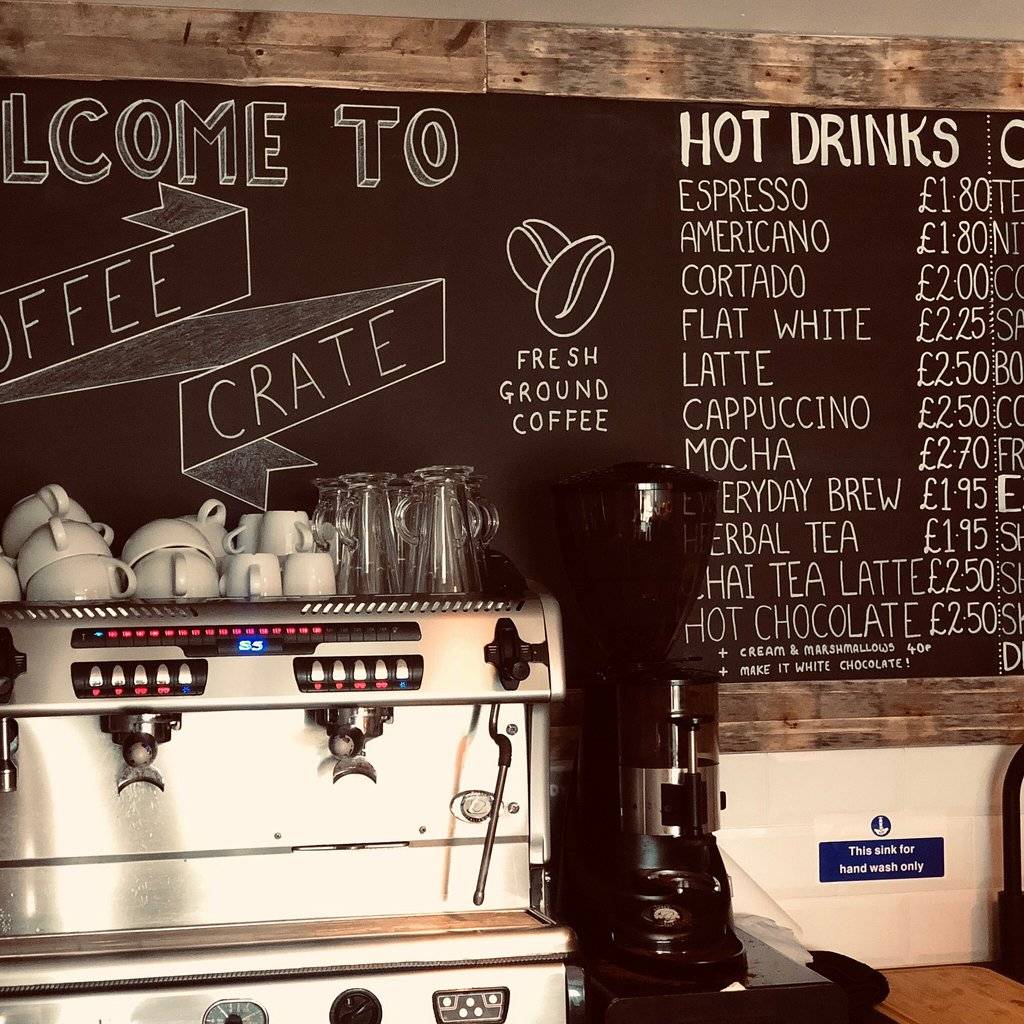 LCOME TO
OFFEE
CRATE
FRESH
GROUND
COFFEE
HOT DRINKS
ESPRESSO £1.80
AMERICANO £1.80
CORTADO £2.00
FLAT WHITE £2.25
LATTE £2.50
CAPPUCCINO £2.50
MOCHA £2.70
EVERYDAY BREW £1.95
HERBAL TEA £1.95
CHAI TEA LATTE £2.50
HOT CHOCOLATE £2.50
+ CREAM & MARSHMALLOWS 40P
+ MAKE IT WHITE CHOCOLATE!
This sink for
hand wash only